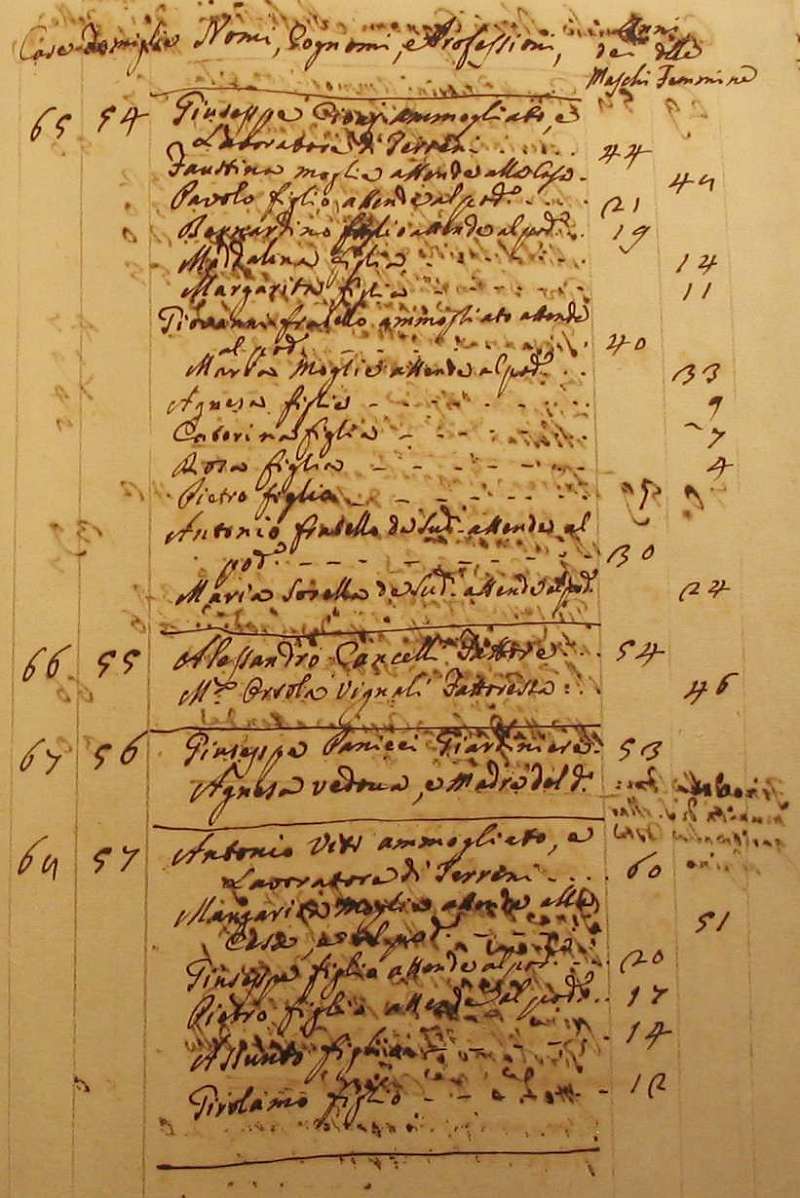 Case Famiglie Nomi, Cognomi, e Professioni, Anni
dei delle
Maschi Femmine
65 54 Giuseppe ammogliato, e
Lavoratore di Terreni 44
Faustina moglie attende alla Casa 49
Pavolo figlio attende al pod.e 21
Bernardino figlio attende al pod.e 19
Maddalena figlia 14
Margarita figlia 11
Giovanni fratello ammogliato attende
al pod.e 40
Maria Moglie attende al pod.e 33
Agnesa figlia 9
Caterina figlia 7
Rosa figlia 4
Pietro figlio
Antonio fratello de Sud. attende al
pod.e 30
Maria Sorella de Sud. attende al pod.e 24
66 55 Alessandro Cancelli Fattore 54
M.a Orsola Vignali Fattoressa 46
67 56 Giuseppe Panicci Giardiniere 53
Agnesa vedova, e Madre del d.o
69 57 Antonio Viti ammogliato, e
Lavoratore di Terreni 60
Margarita moglie attende alla
Casa, e al pod.e 51
Giuseppe figlio attende al pod.e 20
Pietro figlio attende al pod.e 17
Assunto figlio 14
Girolamo figlio 12